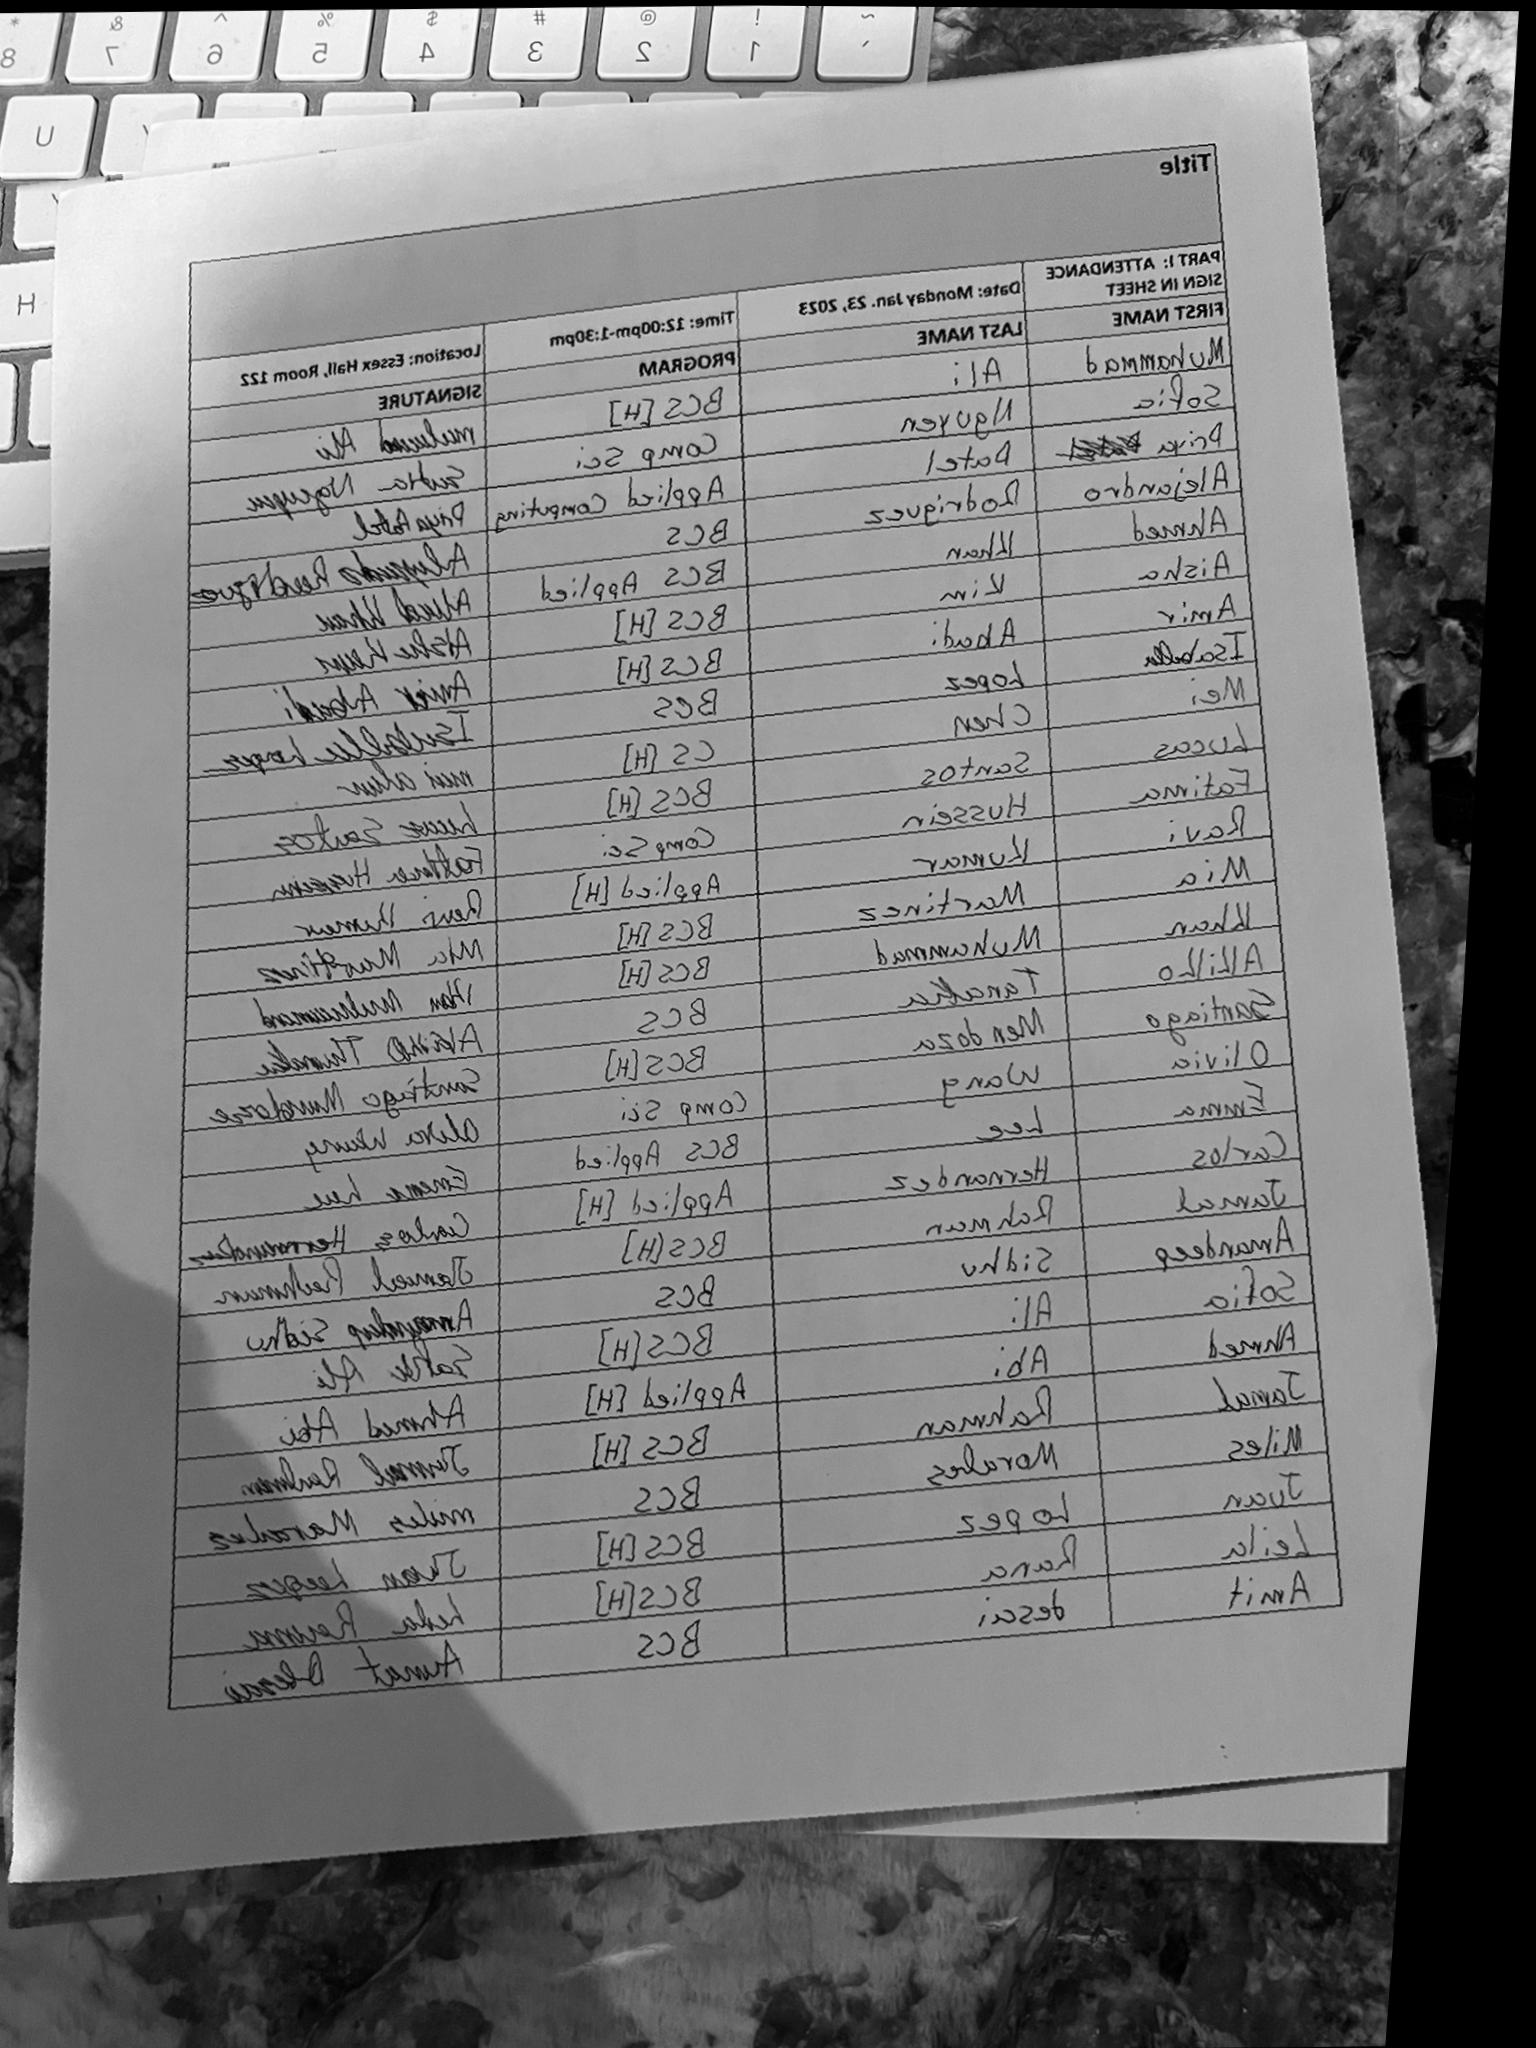 ~ ! @ # $ % ^ & *
` 1 2 3 4 5 6 7 8
U
H
Title
PART I: ATTENDANCE SIGN IN SHEET Date: Monday Jan. 23, 2023 Time: 12:00pm-1:30pm Location: Essex Hall, Room 122
FIRST NAME LAST NAME PROGRAM SIGNATURE
Muhammad Ali BCS [H] Ali
Sofia Nguyen Comp Sci Nguyen
Priya Patel Applied Computing Priya Patel
Alejandro Rodriguez BCS
Ahmed Khan BCS Applied Ahmed Khan
Aisha Kim BCS [H]
Amir Abadi BCS [H] Amir Abadi
Isabella Lopez BCS
Mei Chen CS [H]
Lucas Santos BCS [H] Lucas Santos
Fatima Hussein Comp Sci Fatima Hussein
Ravi Kumar Applied [H] Ravi Kumar
Mia Martinez BCS [H] Mia Martinez
Khan Muhammad BCS [H] Khan Muhammad
AkiLko Tanaka BCS
Santiago Mendoza BCS [H] Santiago
Olivia Wang Comp Sci
Emma Lee BCS Applied Emma Lee
Carlos Hernandez Applied [H] Carlos
Jamal Rahman BCS [H] Jamal
Amandeep Sidhu BCS Sidhu
Sofia Ali BCS [H] Ali
Ahmed Abi Applied [H] Ahmed Abi
Jamal Rahman BCS [H] Jamal
Miles Morales BCS miles
Juan Lopez BCS [H] Juan
Leila Rana BCS [H]
Amit desai BCS